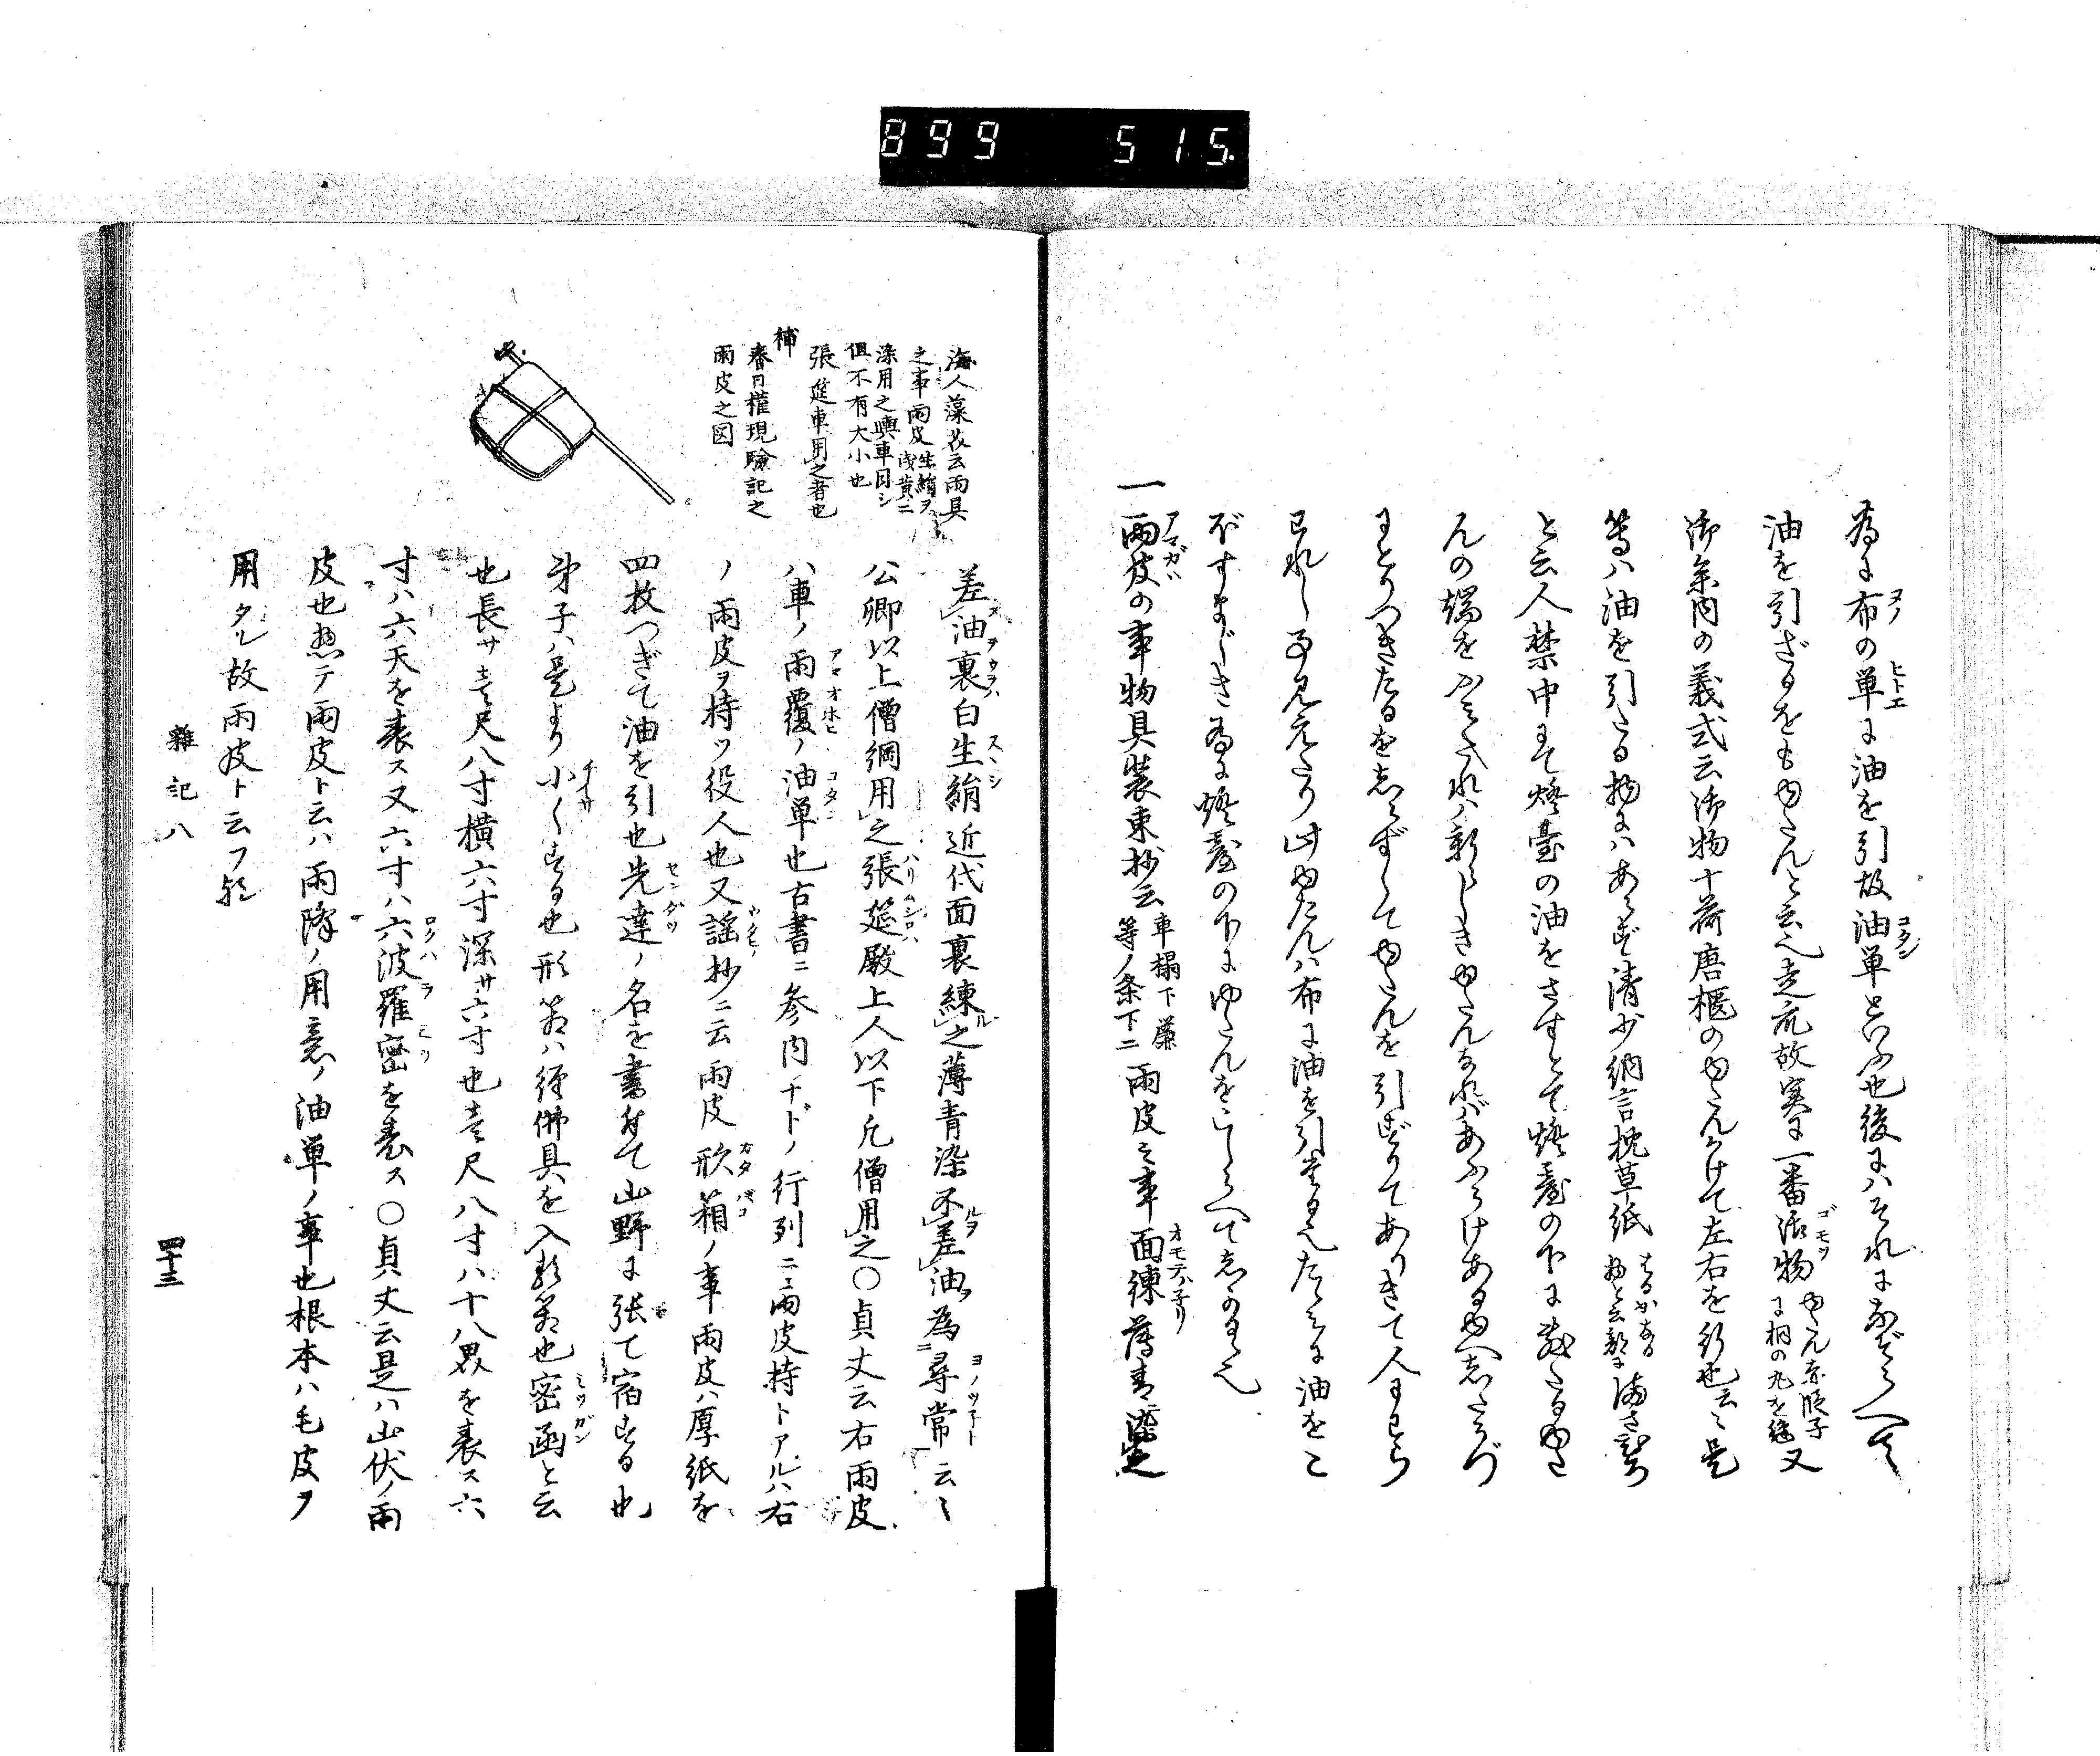 899 515.
為に布の単に油を引故油単といふ也後にハそれになぞらへて
油を引ざるをもゆたんと云也走衆故実に一番
御参内の義式云御物十荷唐櫃のゆたんかけて左右を行也云々是
等ハ油を引たる物にハあらず清少納言枕草紙
と云人禁中にて燈臺の油をさすとて燈臺の下に敷たるゆた
んの端をふミたれハ新らしきゆたんなれバあぶらけあるゆへしたうづ
にとりつきたるをしらずしてゆたんを引ずりてありきて人にわら
ハれし事見えたり此ゆたんハ布に油を引たる也たゝミに油をこ
ぼすまじき為に燈臺の下にゆたんをこしらへてしかるゝ也
一雨皮の事物具装束抄云 車榻下簾等ノ条下ニ 雨皮之事 面練薄青染
海人藻芥云雨具
之事雨皮 生絹ヲ浅黄ニ
染用之輿車同シ
但不有大小也
張筵車用之者也
補
春日權現驗記之
雨皮之図
差油裏白生絹近代面裏練之薄青染不差油為尋常云々
公卿以上僧綱用之張筵殿上人以下凡僧用之〇貞丈云右雨皮
ハ車ノ雨覆ノ油単也古書ニ参内ナドノ行列ニ雨皮持トアルハ右
ノ雨皮ヲ持ツ役人也又謡抄ニ云雨皮形箱ノ事雨皮ハ厚紙を
四枚つぎて油を引也先達ノ名を書付て山野に張て宿する也
弟子ハ是より小くする也形箱ハ經佛具を入箱也密函と云
也長サ壱尺八寸横六寸深サ六寸也壱尺八寸ハ十八界を表ス六
寸ハ六天を表ス又六寸ハ六波羅密を表ス〇貞丈云是ハ山伏ノ雨
皮也惣テ雨皮ト云ハ雨降ノ用意ノ油単ノ事也根本ハ毛皮ヲ
用タル故雨皮ト云フ歟
雜記八
四十三